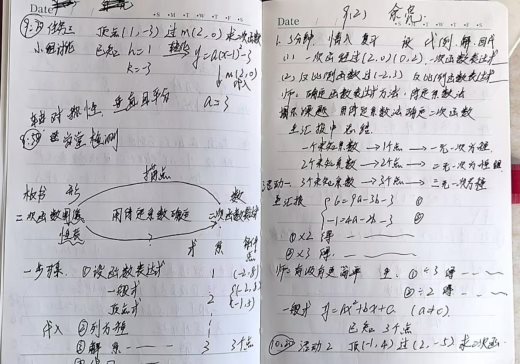 Date
9:25 任务二 顶点(1,-3) 过m(2,0) 求二次函数
小组讨论 已知 h=1 y=a(x-1)²-3
k=-3 ↓ m(2,0)
代入
轴对称性,垂直且平分 a=3
课堂检测
描点
板书 形 数
二次函数图像 用待定系数确定 二次函数表达式
性质
?
一步方案 ①设函数表达式 1 (-2,8)
一般式 2 (-1,5)
顶点式
代入 ②列方程
③解 3 3个点
Date 9.(2)
1. 5分钟 情入 复习 设 代 列 解 回代
(1) 一次函数过(2,0)(0,2) 一次函数表达式
(2) 反比例函数过(-2,3) 反比例函数表达式
师:确定函数表达式方法:待定系数法
揭示课题 用待定系数法确定二次函数
生汇报中总结
1个未知系数 → 1个点 → 一元一次方程
2个未知系数 → 2个点 → 二元一次方程组
活动一 3个未知系数 → 3个点 → 三元一次方程
生汇报 { 6=9a-3b-3 ①
-1=4a-2b-3 ②
①×2 得
②×3 得
师:有没有更简单 生:①÷3 得
②÷2 得
一般式 y=ax²+bx+c (a≠0)
已知 3个点
10:20 活动2 顶(-1,4) 过(2,-5) 求二次函